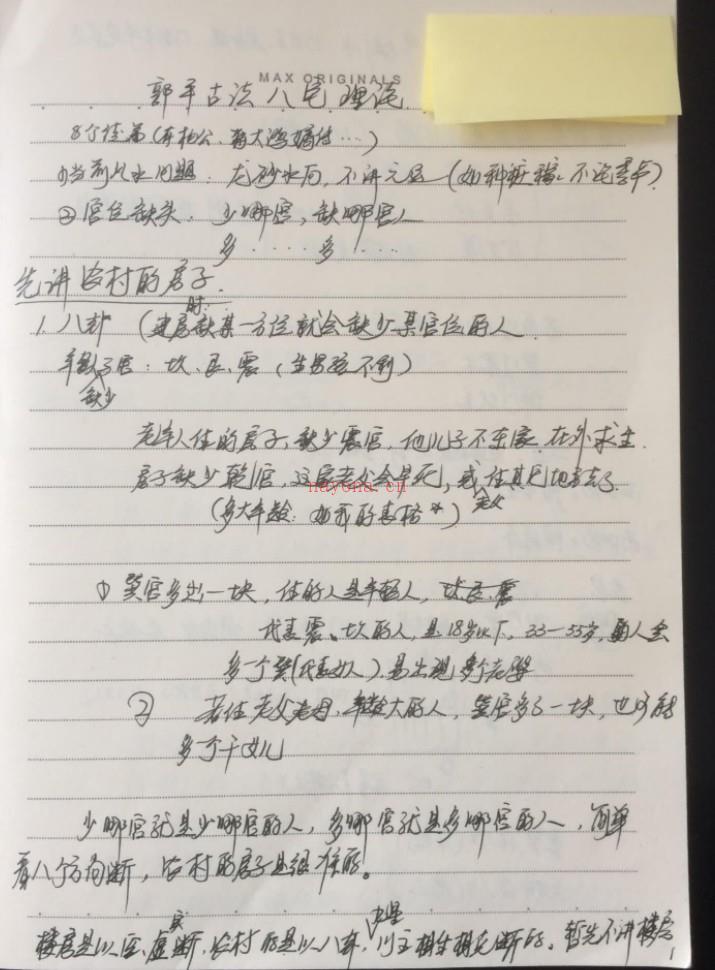 MAX ORIGINALS
郭平古法八宅理论
8个徒弟(有杨公、
①当前风水问题:龙砂水向,不讲元运(如种庄稼、不论季节)
②宫位缺失:少哪宫,缺哪宫人
多....多....
先讲农村的房子.
时:
1.八卦(建房缺某一方位就会缺少某宫位的人
宫:坎、艮、震(生男孩不利)
缺少
老年人住的房子,缺少震宫,他儿子不在家,在外求生.
房子缺少乾宫,这家老父会早死,或住其他地方去了
老父
(多大年龄:如我的表格*)
nayona.cn
①巽宫多出一块,住的人是年轻人,坎艮震
代表震、坎的人,是18岁以下,33-55岁,男人会
多一个巽(代表女人),易出现多个老婆
② 若住老父老母,年龄大的人,巽宫多了一块,也可能
多个干女儿
少哪宫就是少哪宫的人,多哪宫就是多哪宫的人,简单
看八个方向断,农村的房子是很准的。
楼房是以宫,虚实断,农村的是以八卦,九星相生相克断的。暂先不讲楼房
1